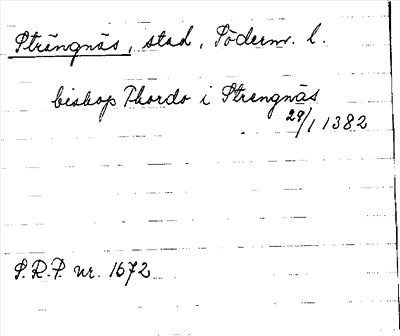 Strängnäs, stad, Söderm. l.
biskop Thordo i Strengnäs
29/1 1382
S.R.P. nr. 1672